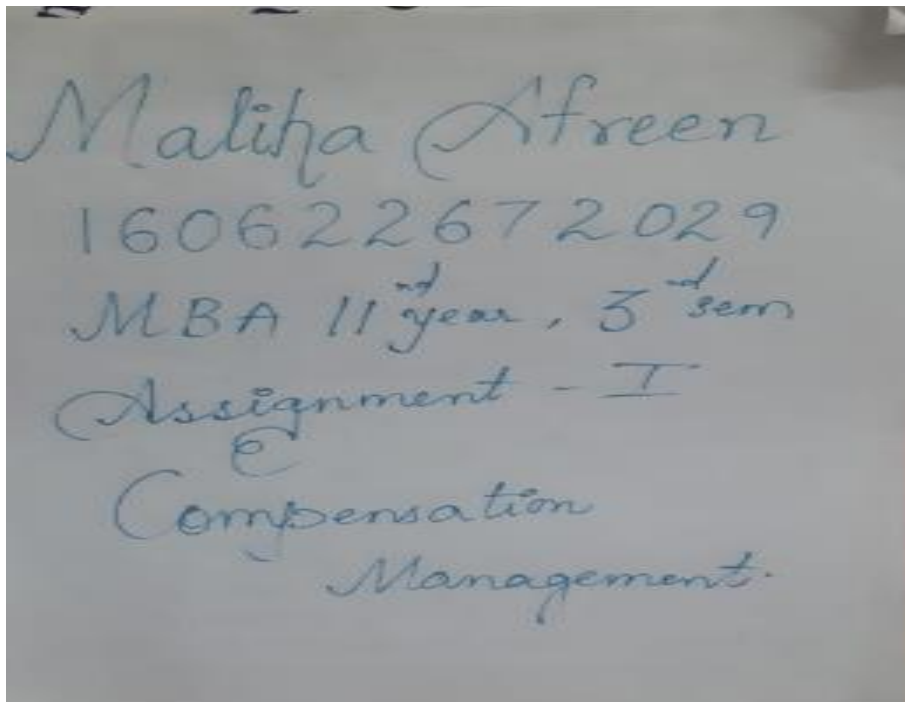 Maliha Afreen
160622672029
MBA 11nd year, 3rd sem
Assignment - I
Compensation
Management.